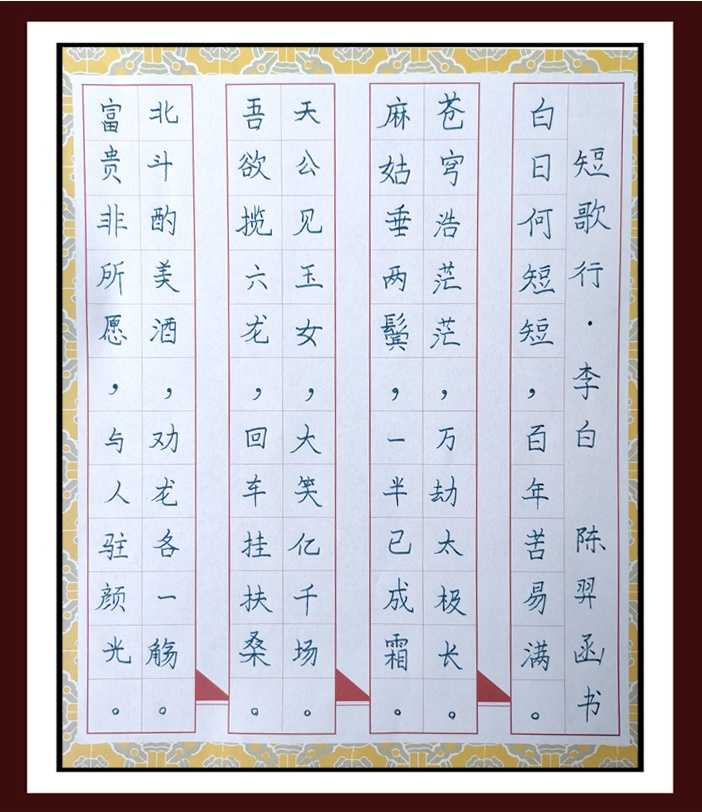 短歌行·李白 陈羿函书
白日何短短，百年苦易满。
苍穹浩茫茫，万劫太极长。
麻姑垂两鬓，一半已成霜。
天公见玉女，大笑亿千场。
吾欲揽六龙，回车挂扶桑。
北斗酌美酒，劝龙各一觞。
富贵非所愿，与人驻颜光。